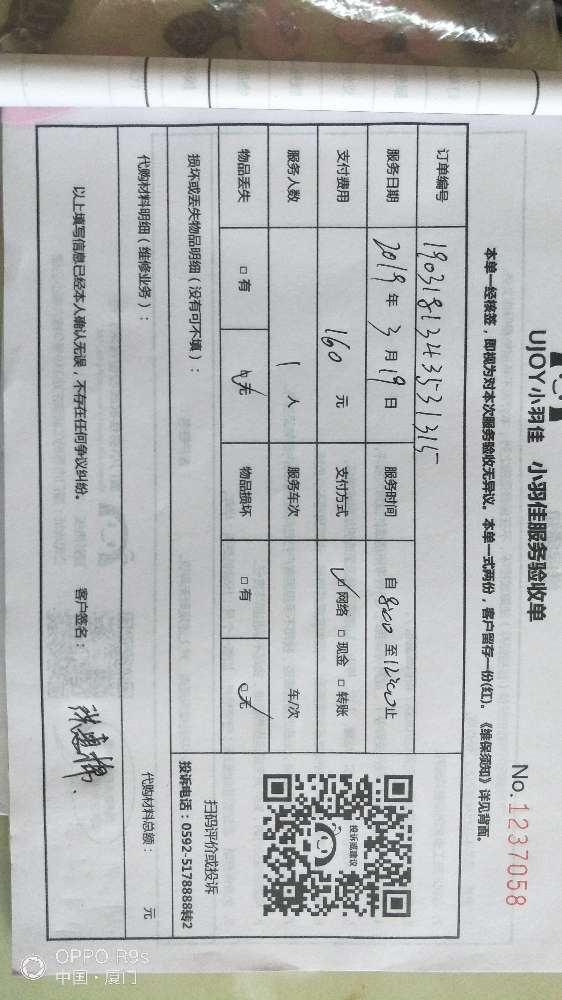 UJOY小羽佳 小羽佳服务验收单
No.1237058
本单一经核签，即视为对本次服务验收无异议。本单一式两份，客户留存一份(红)。《维保须知》详见背面。
订单编号 19031813435331315
服务日期 2019年3月19日 服务时间 自8:00至12:00止
支付费用 160元 支付方式 □网络 □现金 □转账
服务人数 1人 服务车次 车/次
物品丢失 □有 □无 物品损坏 □有 □无
损坏或丢失物品明细（没有可不填）：
投诉或建议
扫码评价或投诉
投诉电话：0592-5178888转2
代购材料明细（维修业务）：
代购材料总额： 元
以上填写信息已经本人确认无误，不存在任何争议纠纷。 客户签名：
OPPO R9s
中国·厦门